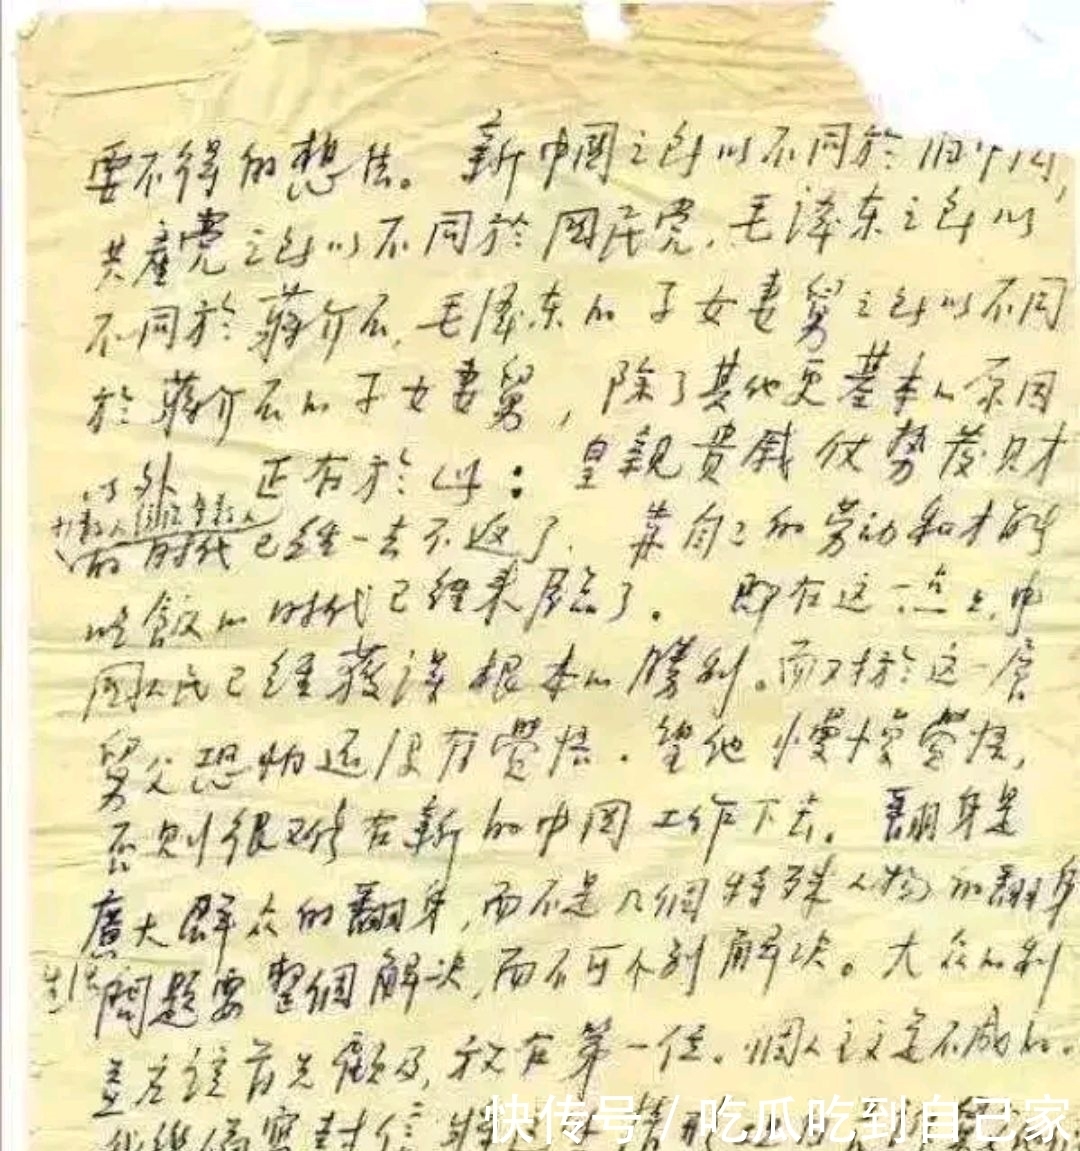 要不得的想法。新中國之所以不同於旧中国,
共產党之所以不同於國民党,毛泽东之所以
不同於蒋介石,毛泽东的子女妻舅之所以不同
於蒋介石的子女妻舅,除了其他更基本的原因
以外
正在於此:皇親貴戚仗势发财
少数人统治多数人
的时代已经一去不返了.靠自己的劳动和才能
吃飯的时代已经来臨了。即在这一点上,中
国人民已经獲得根本的勝利。而对於这一層
舅父恐怕还没有覺悟.望他慢慢覺悟,
否则很难在新的中国工作下去。翻身是
廣大群众的翻身,而不是几個特殊人物的翻身
生活問題要整個解决,而不可个别解决。大众的利
益应該首先顧及,放在第一位。個人主义是不成的。
我準備寫封信
快传号/吃瓜吃到自己家